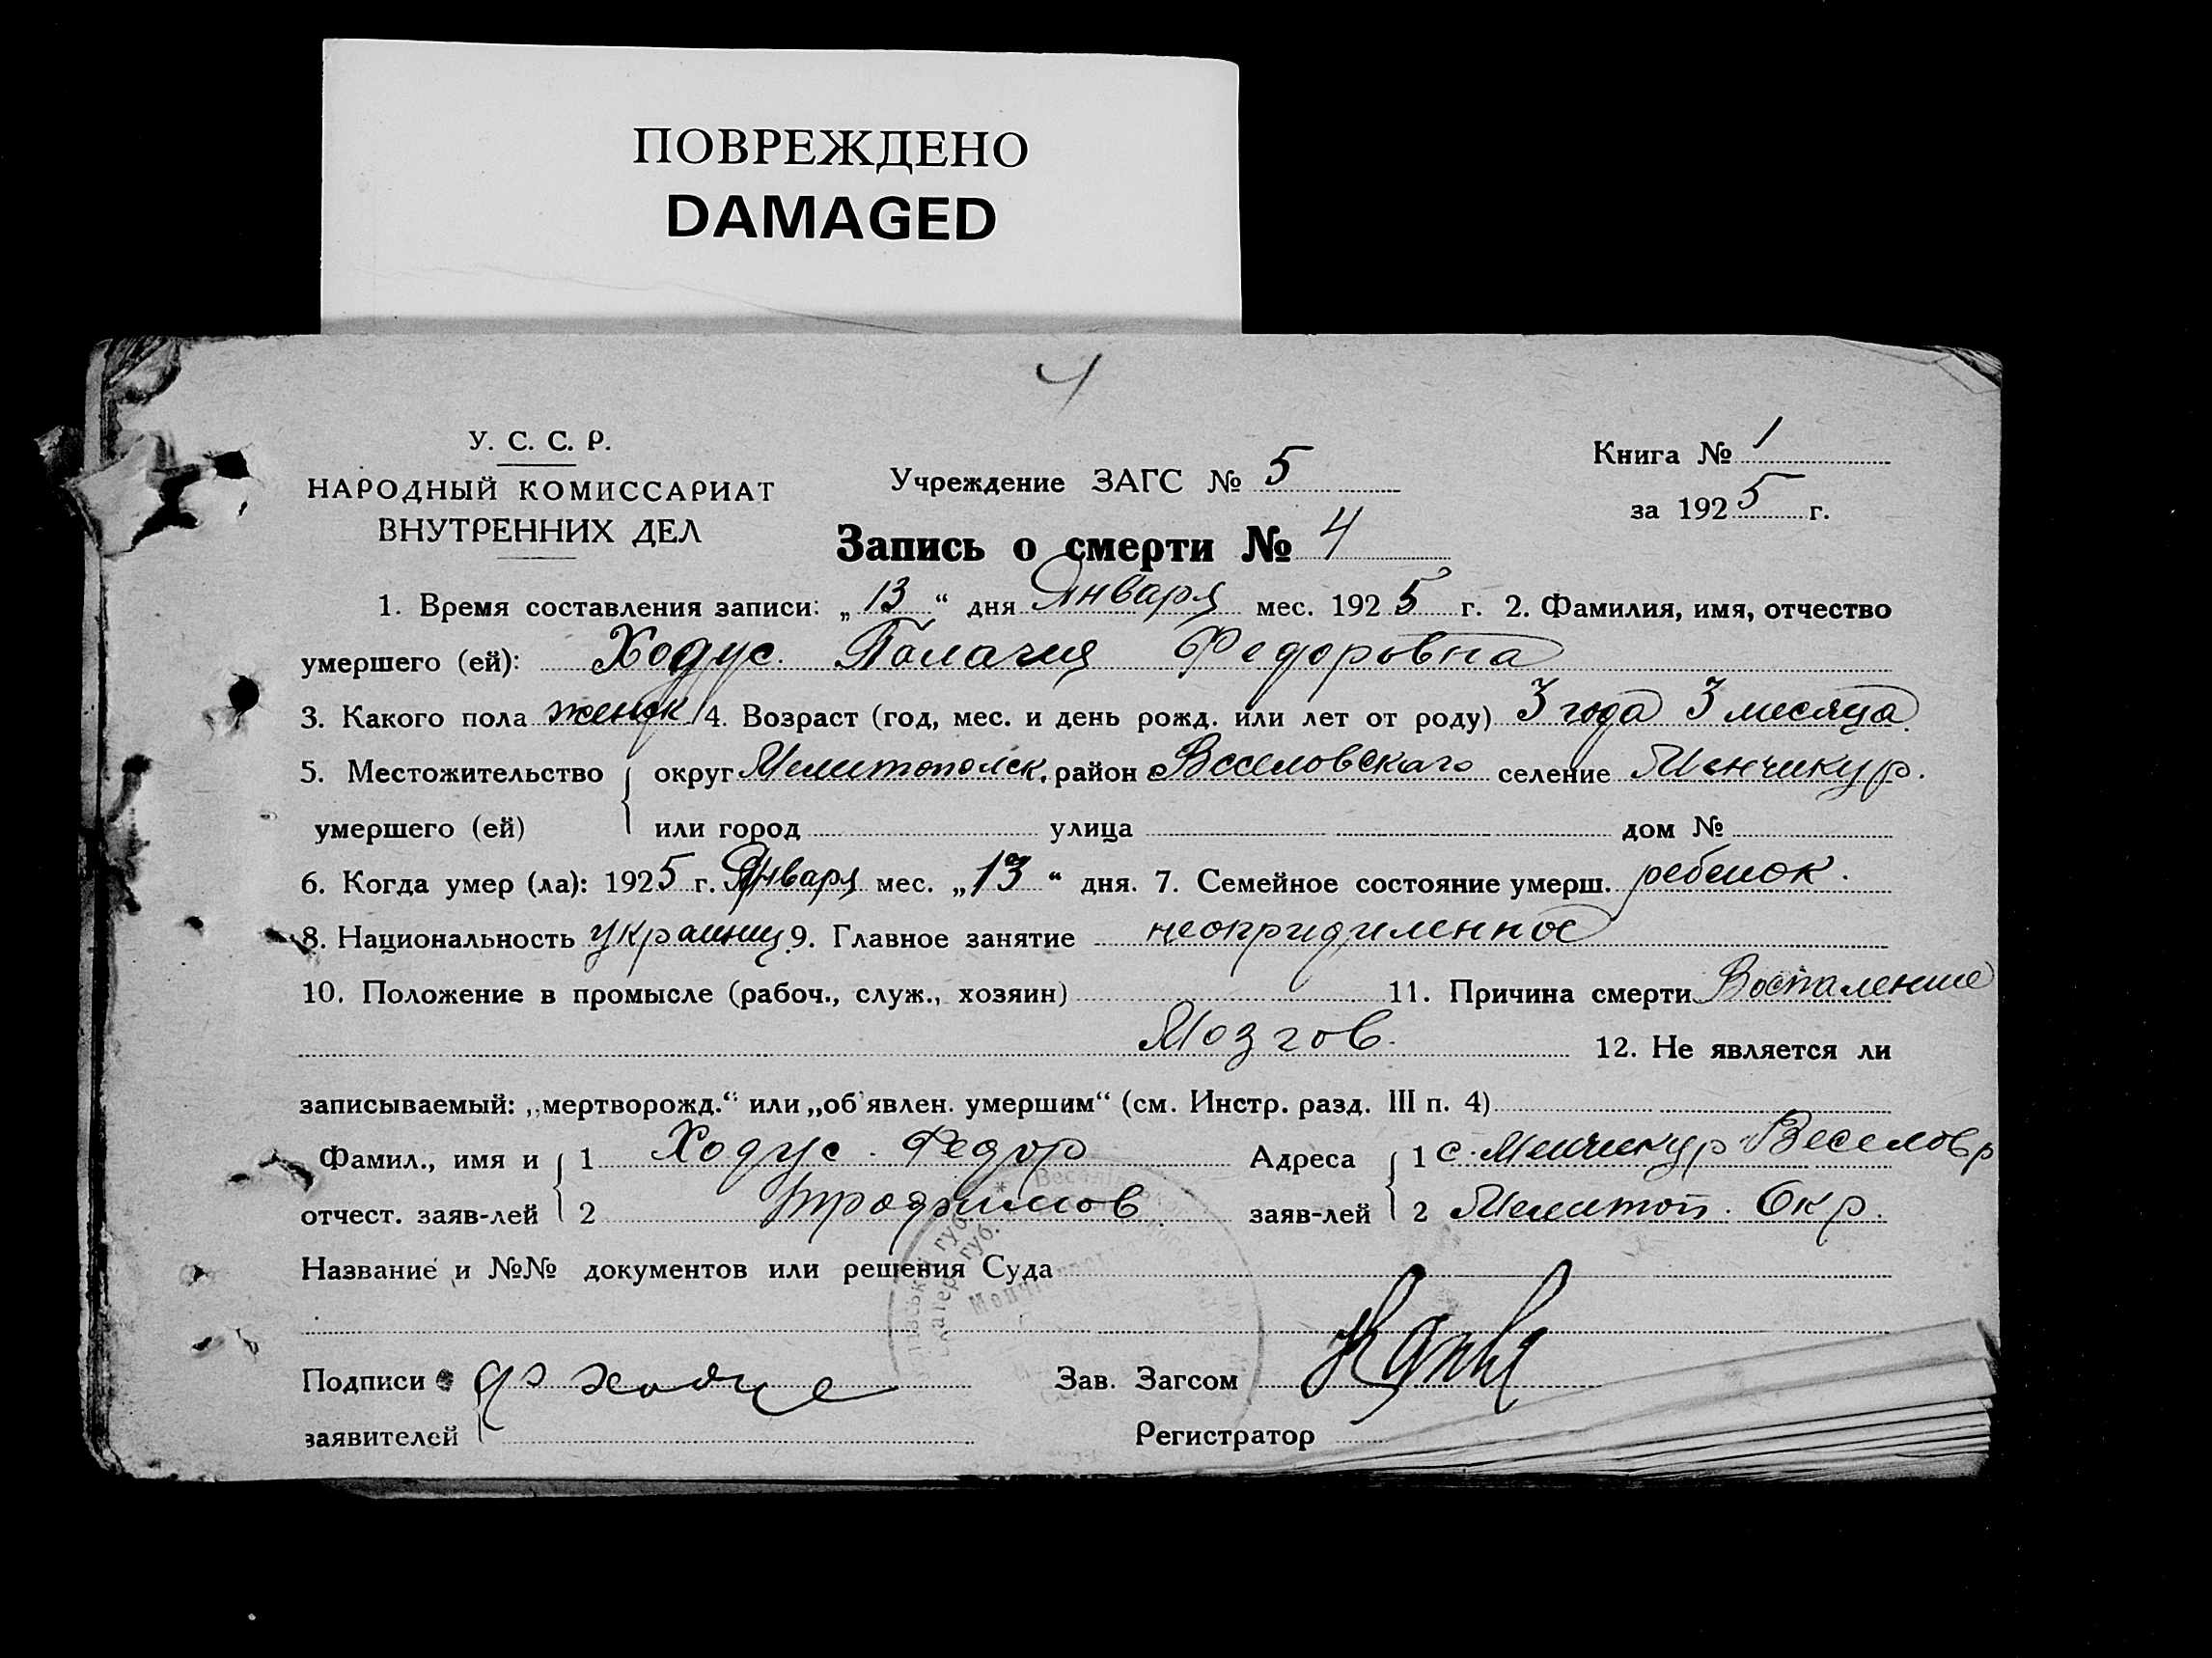 ПОВРЕЖДЕНО
DAMAGED
4
У. С. С. Р.
НАРОДНЫЙ КОМИССАРИАТ
ВНУТРЕННИХ ДЕЛ
Учреждение ЗАГС № 5
Книга № 1
за 1925 г.
Запись о смерти № 4
1. Время составления записи: „13“ дня Января мес. 1925 г. 2. Фамилия, имя, отчество
умершего (ей): Ходус Палагия Федоровна
3. Какого пола женск 4. Возраст (год, мес. и день рожд. или лет от роду) 3 года 3 месяца.
5. Местожительство округ Мелитопольск. район Веселовского селение Менчикур.
умершего (ей) или город улица дом №
6. Когда умер (ла): 1925 г. Января мес. „13“ дня. 7. Семейное состояние умерш. ребенок.
8. Национальность украинц 9. Главное занятие неопридиленное
10. Положение в промысле (рабоч., служ., хозяин) 11. Причина смерти Воспаление
Мозгов. 12. Не является ли
записываемый: „мертворожд.“ или „об'явлен. умершим“ (см. Инстр. разд. III п. 4)
Фамил., имя и 1 Ходус Федор Адреса 1 с. Менчикур Веселов р
отчест. заяв-лей 2 Трофимов заяв-лей 2 Мелитоп. Окр.
Название и №№ документов или решения Суда
Подписи Ф Ходус Зав. Загсом
заявителей Регистратор